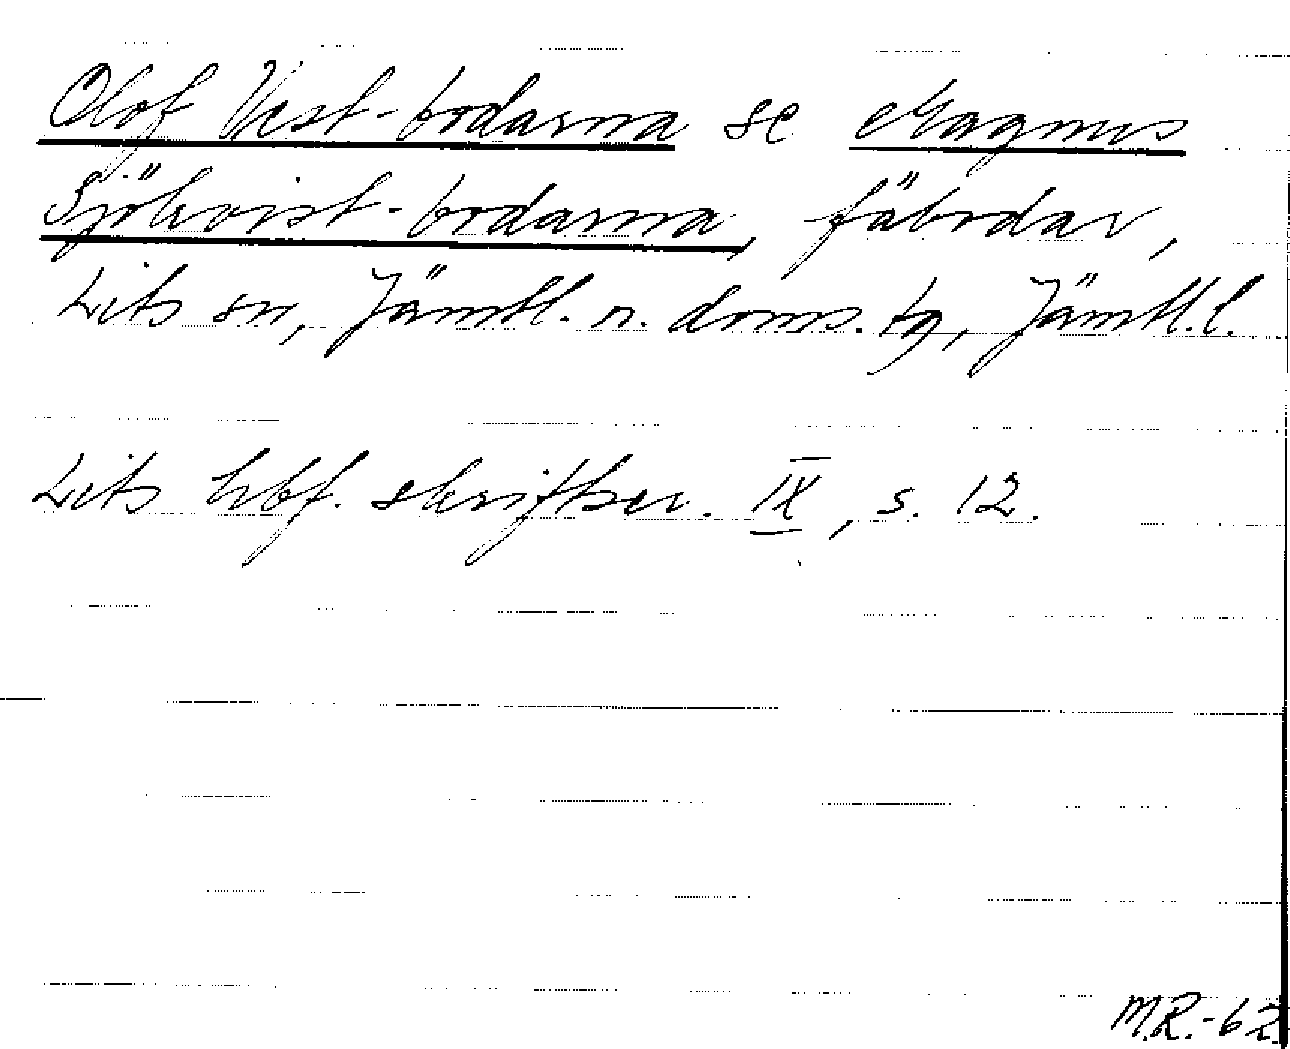 Olof Vest-bodarna se Magnus
Sjökvist-bodarna, fäbodar,
Lits sn, Jämtl. n. doms. tg, Jämtl.l.
Lits hbf. skriftser. IX, s. 12.
M.R.-62